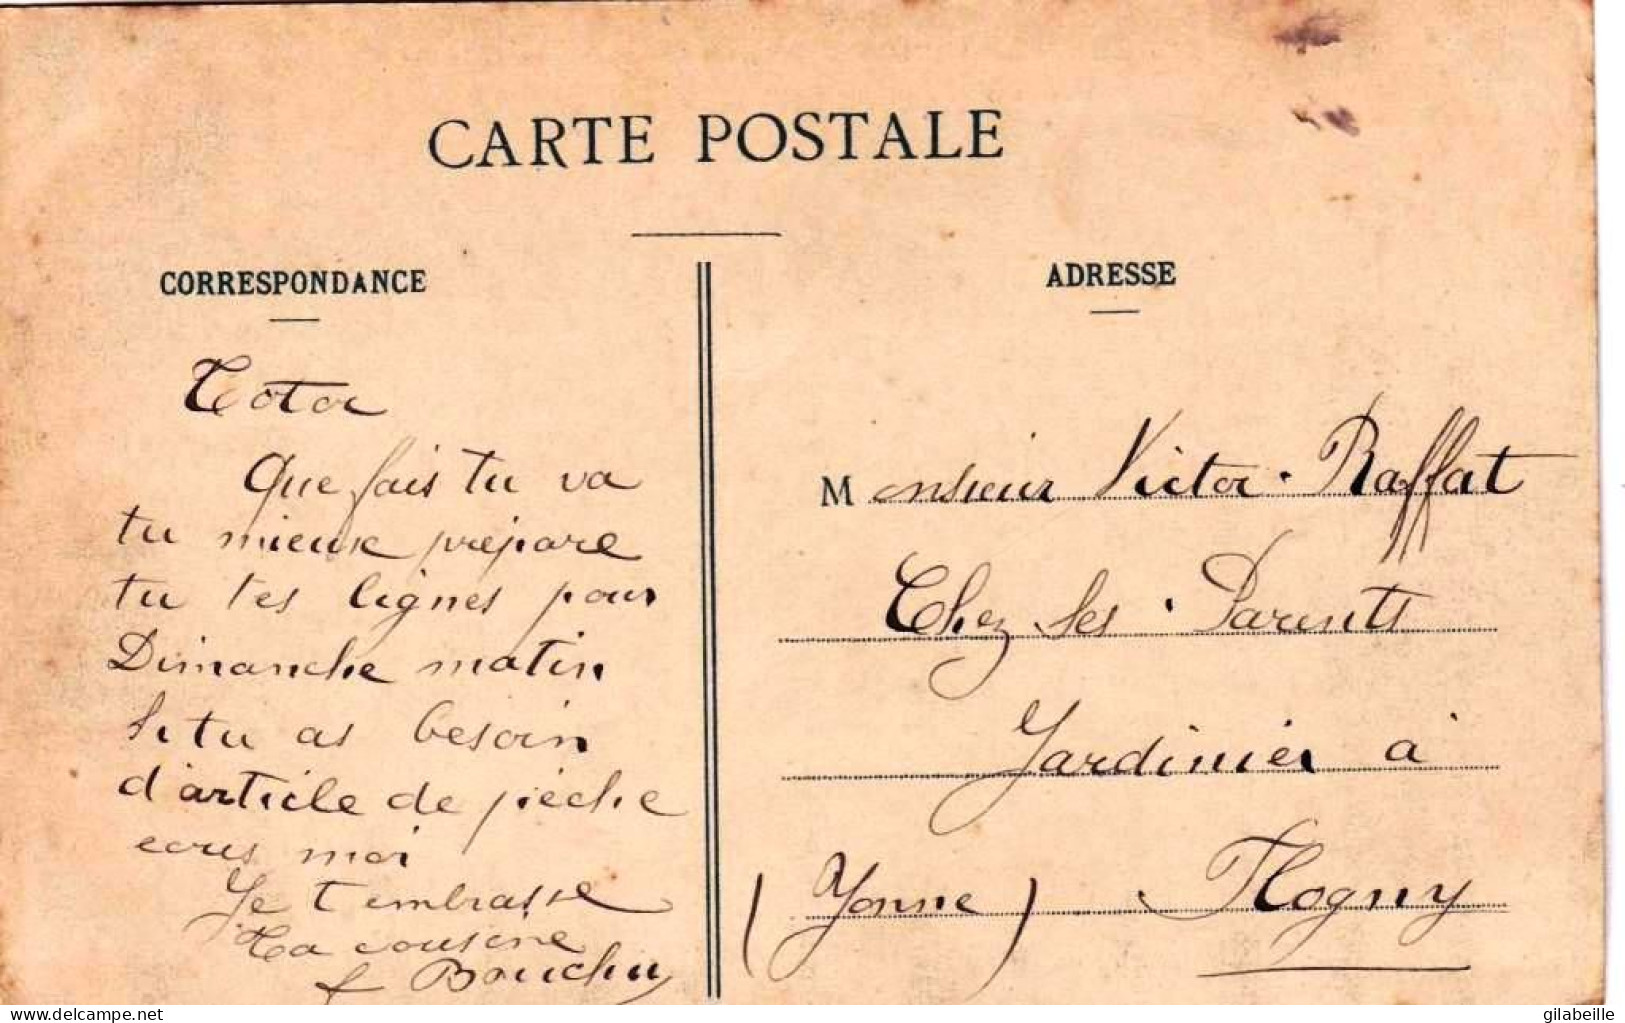 CARTE POSTALE
CORRESPONDANCE
Totor
Que fais tu va
tu mieux prépare
tu tes lignes pour
Dimanche matin
Si tu as besoin
d'article de pièche
ecris moi
Je t embrasse
Ta cousine
ADRESSE
Monsieur Victor Raffat
Chez Ses Parents
Jardinier à
Flogny
(Yonne)
delcampe.net
gilabeille